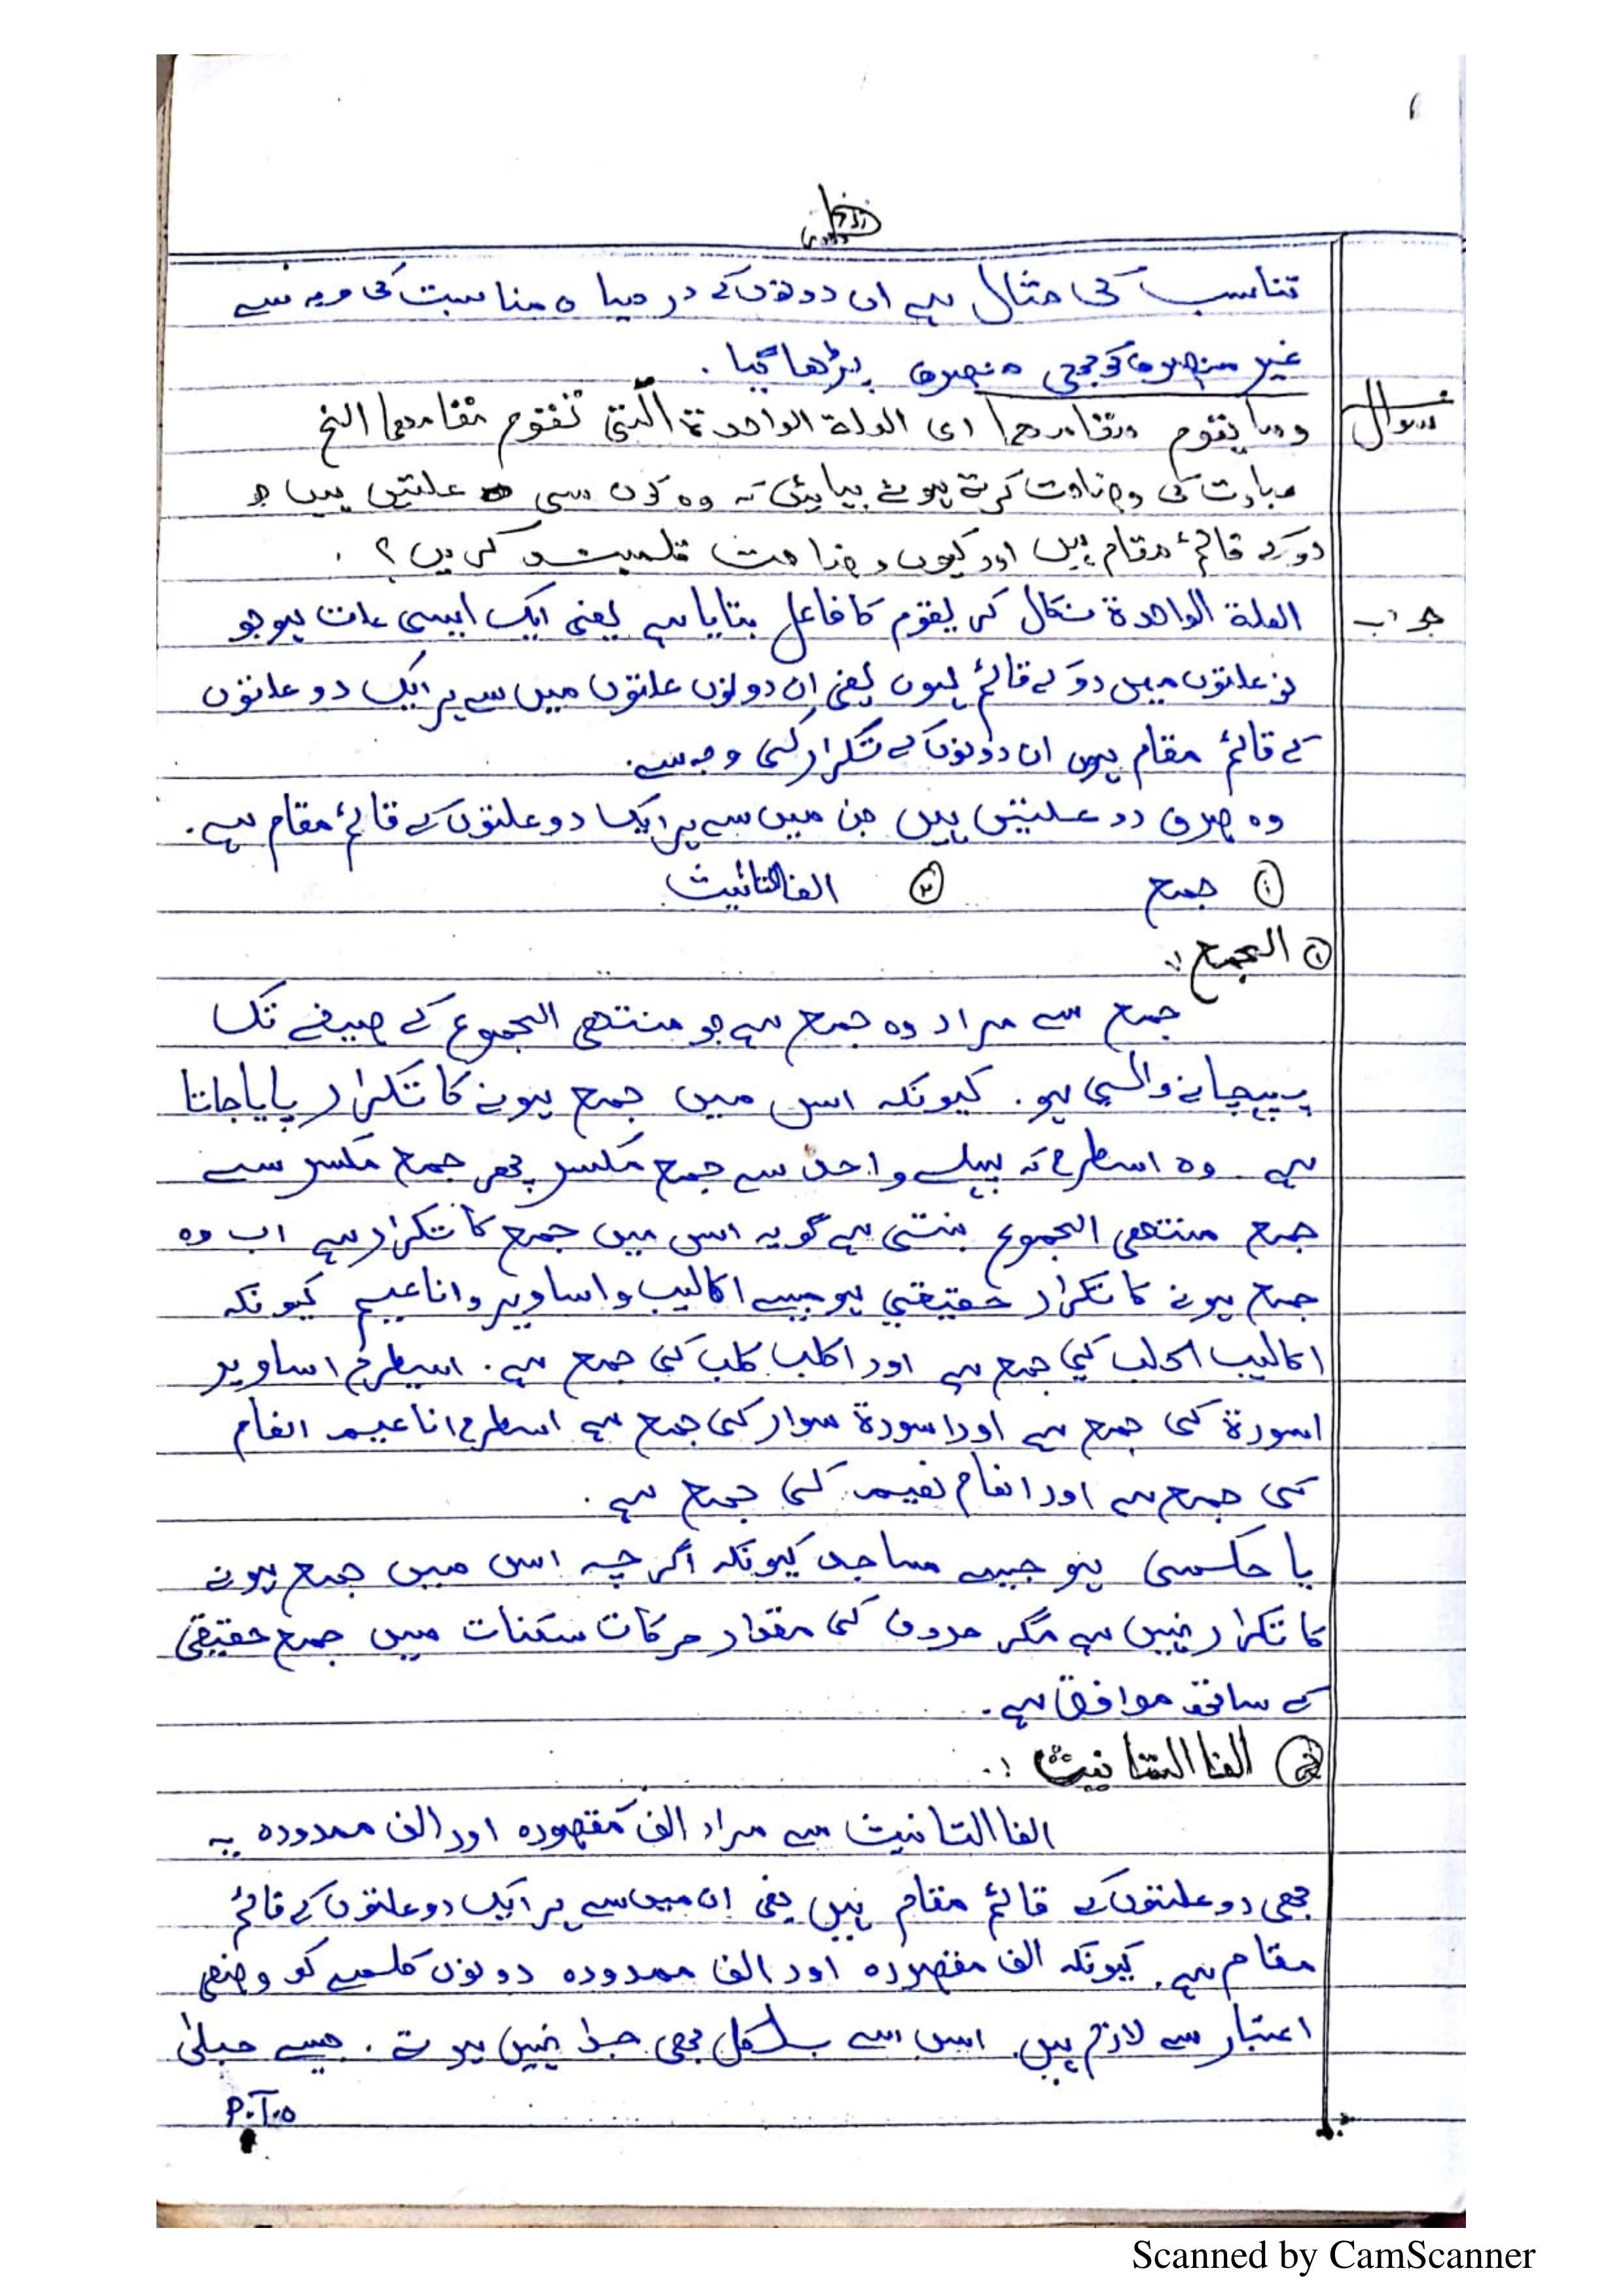 تناسب کی مثال ہے ان دونوں کے درمیان مناسبت کی وجہ سے
غیر منصرف کو بھی منصرف پڑھا گیا۔
سوال
وما یقوم مقامھما ای العلة الواحدة التی تقوم مقامھما الخ
عبارت کی وضاحت کرتے ہوئے بتایئں کہ وہ کون سی علتیں ہیں جو
دو کے قائم مقام ہیں اور کیوں وضاحت قلمبند کریں؟
جواب
العلة الواحدة نکال کر یقوم کا فاعل بتایا ہے یعنی ایک ایسی علت ہو جو
نو علتوں میں دو کے قائم ہوں یعنی ان دونوں علتوں میں سے ہر ایک دو علتوں
کے قائم مقام ہوں ان دونوں کے تکرار کی وجہ سے۔
وہ صرف دو علتیں ہیں جن میں سے ہر ایک دو علتوں کے قائم مقام ہے۔
① جمع ② الفا التانیث
① الجمع :.
جمع سے مراد وہ جمع ہے جو منتھی الجموع کے صیغے تک
پہچانے والی ہو۔ کیونکہ اس میں جمع ہونے کا تکرار پایا جاتا
ہے وہ اسطرح کہ پہلے واحد سے جمع مکسر پھر جمع مکسر سے
جمع منتھی الجموع بنتی ہے گویہ اس میں جمع کا تکرار ہے اب وہ
جمع ہونے کا تکرار حقیقی ہو جیسے اکالیب واساویر واناعیم کیونکہ
اکالیب اکلب کی جمع ہے اور اکلب کلب کی جمع ہے۔ اسیطرح اساویر
اسورة کی جمع ہے اور اسورة سوار کی جمع ہے اسطرح اناعیم انعام
کی جمع ہے اور انعام نعیم کی جمع ہے۔
یا حکمی ہو جیسے مساجد کیونکہ اگرچہ اس میں جمع ہونے
کا تکرار نہیں ہے مگر حروف کی مقدار حرکات سکنات میں جمع حقیقی
کے ساتھ موافق ہے۔
② الفا التانیث :.
الفا التانیث سے مراد الف مقصورہ اور الف ممدودہ یہ
بھی دو علتوں کے قائم مقام ہیں یعنی ان میں سے ہر ایک دو علتوں کے قائم
مقام ہے۔ کیونکہ الف مقصورہ اور الف ممدودہ دونوں کلمے کو وضعی
اعتبار سے لازم ہیں۔ اس سے بلکل بھی جدا نہیں ہوتے۔ جیسے حبلیٰ
P.T.O
Scanned by CamScanner